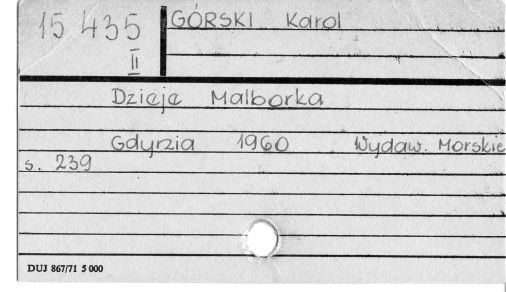 15 435
II
GÓRSKI Karol
Dzieje Malborka
Gdynia 1960 Wydaw. Morskie
s. 239
DUJ 867/71 5 000